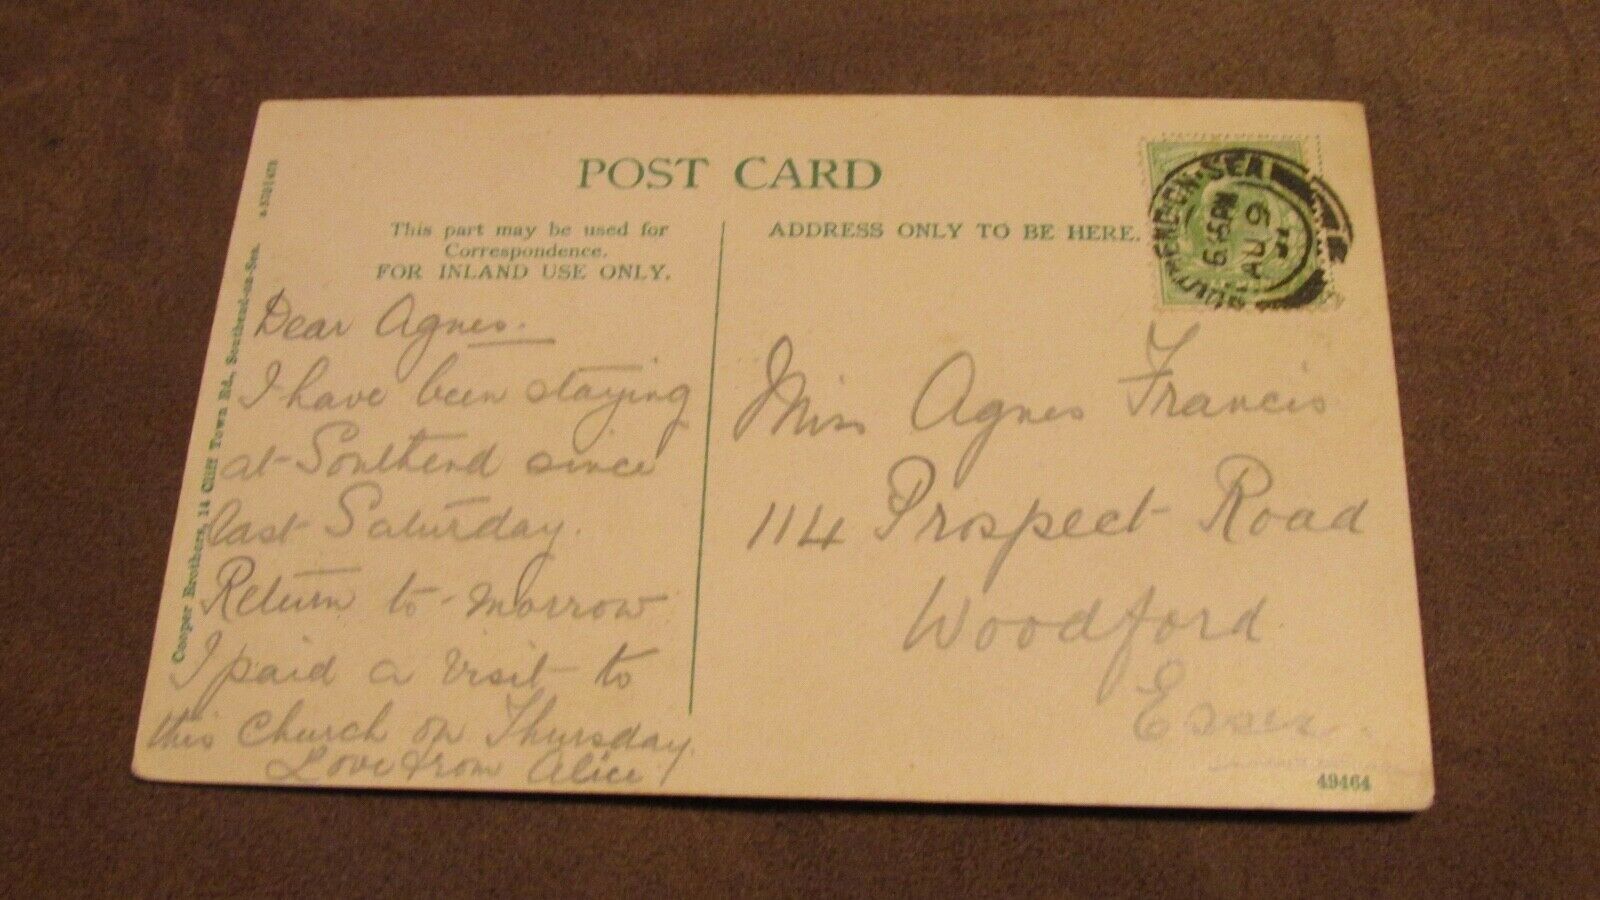 POST CARD
This part may be used for
Correspondence.
FOR INLAND USE ONLY.
ADDRESS ONLY TO BE HERE.
SOUTHEND-ON-SEA
6.45PM
AU 9
11
Dear Agnes.
I have been staying
at Southend since
last Saturday.
Return to-morrow
I paid a visit to
this Church on Thursday.
Love from Alice
Miss Agnes Francis
114 Prospect Road
Woodford
Essex.
Cooper Brothers, 14 Cliff Town Rd., Southend-on-Sea.
49464